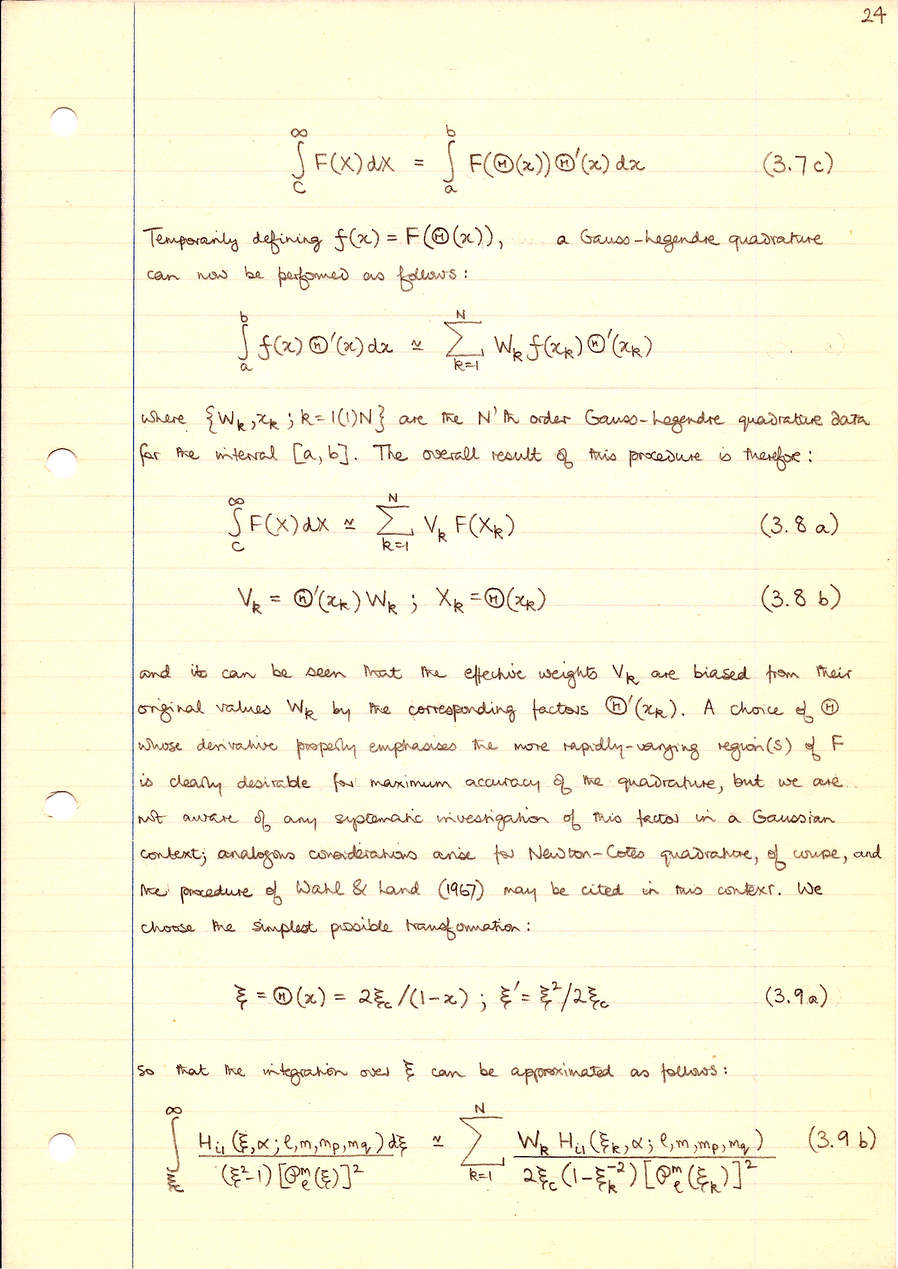 24
∫_C^∞ F(X) dX = ∫_a^b F(Θ(x)) Θ′(x) dx (3.7c)
Temporarily defining f(x) = F(Θ(x)), a Gauss-Legendre quadrature
can now be performed as follows:
∫_a^b f(x) Θ′(x) dx ≃ ∑_{k=1}^N W_k f(x_k) Θ′(x_k)
where {W_k, x_k ; k = 1(1)N} are the N'th order Gauss-Legendre quadrature data
for the interval [a, b]. The overall result of this procedure is therefore:
∫_C^∞ F(X) dX ≃ ∑_{k=1}^N V_k F(X_k) (3.8 a)
V_k = Θ′(x_k) W_k ; X_k = Θ(x_k) (3.8 b)
and it can be seen that the effective weights V_k are biased from their
original values W_k by the corresponding factors Θ′(x_k). A choice of Θ
whose derivative properly emphasises the more rapidly-varying region(s) of F
is clearly desirable for maximum accuracy of the quadrature, but we are
not aware of any systematic investigation of this factor in a Gaussian
context; analogous considerations arise for Newton-Cotes quadrature, of course, and
the procedure of Wahl & Land (1967) may be cited in this context. We
choose the simplest possible transformation:
ξ = Θ(x) = 2ξ_c/(1-x) ; ξ′ = ξ²/2ξ_c (3.9a)
so that the integration over ξ can be approximated as follows:
∫_{ξ_c}^∞ H_{i1}(ξ, α; ℓ, m, m_p, m_q) dξ / (ξ²-1) [𝒫_ℓ^m(ξ)]² ≃ ∑_{k=1}^N W_k H_{i1}(ξ_k, α; ℓ, m, m_p, m_q) / 2ξ_c (1-ξ_k^{-2}) [𝒫_ℓ^m(ξ_k)]² (3.9 b)